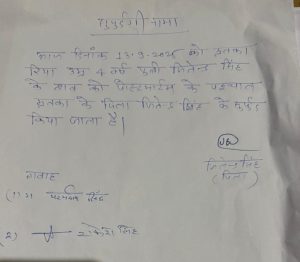 सुपुर्दगी नामा
आज दिनांक 13-9-2025 को मृतका
रिया उम्र 4 वर्ष पुत्री जितेन्द्र सिंह
के शव को पोस्टमार्टम के पश्चात
मृतका के पिता जितेन्द्र सिंह के सुपुर्द
किया जाता है।
जितेन्द्र सिंह
(पिता)
गवाह
(1)
सिंह
(2) राकेश सिंह